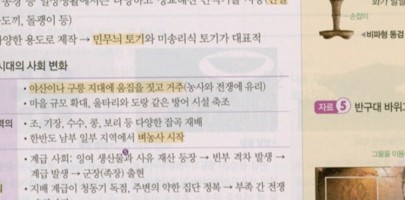 등 일상생활에서는
도끼, 돌괭이 등)
다양한 용도로 제작 → 민무늬 토기와 미송리식 토기가 대표적
시대의 사회 변화
• 야산이나 구릉 지대에 움집을 짓고 거주(농사와 전쟁에 유리)
• 마을 규모 확대, 울타리와 도랑 같은 방어 시설 축조
• 조, 기장, 수수, 콩, 보리 등 다양한 잡곡 재배
• 한반도 남부 일부 지역에서 벼농사 시작
• 계급 사회: 잉여 생산물과 사유 재산 등장 → 빈부 격차 발생 →
계급 발생 → 군장(족장) 출현
• 지배 계급이 청동기 독점, 주변의 약한 집단 정복 → 부족 간 전쟁
손잡이
비파형 동검
자료 5 반구대 바위
그물을 이용